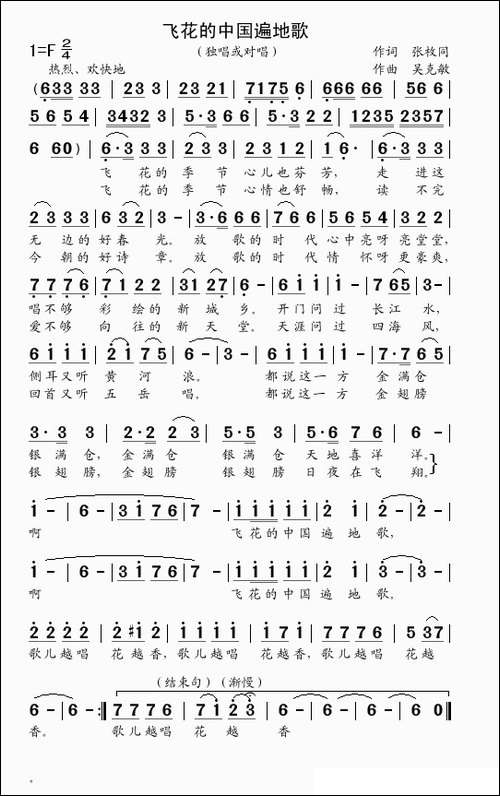 飞花的中国遍地歌
1=F 2/4
(独唱或对唱)
作词 张枚同
热烈、欢快地
作曲 吴克敏
(6333 33 | 223 3 | 223 21 | 7175 6 | 6666 66 | 556 6 |
56 54 | 3432 3 | 5·3 66 | 5·3 22 | 1235 2357 |
6 60) | 6·3 33 | 233 | 2312 | 1 6· | 6·3 33 |
飞 花的 季 节 心儿也 芬 芳, 走 进这
飞 花的 季 节 心情也 舒 畅, 读 不完
2333 | 632 | 3 - | 3·666 | 766 | 5654 | 322 |
无 边的好春 光。放 歌的时 代心中亮呀亮堂堂,
今 朝的好诗 章。放 歌的时 代情 怀呀更豪爽,
7776 | 7122 | 3127 | 6 - | 6111 | 1 - | 765 | 3 - |
唱不够 彩 绘的新城 乡。开门问过 长江 水,
爱不够 向 往的新天 堂。天涯问过 四海 风,
6111 | 2175 | 6 - | 3 - | 6111 | 1 - | 7·765 |
侧耳又听 黄 河 浪。 都说这一 方 金满仓
回首又听 五 岳 唱。 都说这一 方 金翅膀
3·3 3 | 2·2 2 | 23 - | 5·5 3 | 5·356 | 76 | 6 - |
银满仓, 金满仓 银满仓 天地喜洋 洋。
银翅膀, 金翅膀 银翅膀 日夜在飞 翔。
1 - | 6 - | 3176 | 7 - | 11111 | 12 | 2 - | 2 - |
啊 飞花的中国遍 地 歌,
1 - | 6 - | 3176 | 7 - | 11111 | 12 | 3 - | 3 - |
啊 飞花的中国遍 地 歌,
2222 | 2#12 | 1111 | 171 | 7776 | 537 |
歌儿越唱 花越香,歌儿越唱 花越香,歌儿越唱 花越
(结束句)(渐慢)
6 - | 6 - :‖ 7776 | 7123 | 6 - | 6 - | 6 - | 6 0 ‖
香。 歌儿越唱 花 越 香